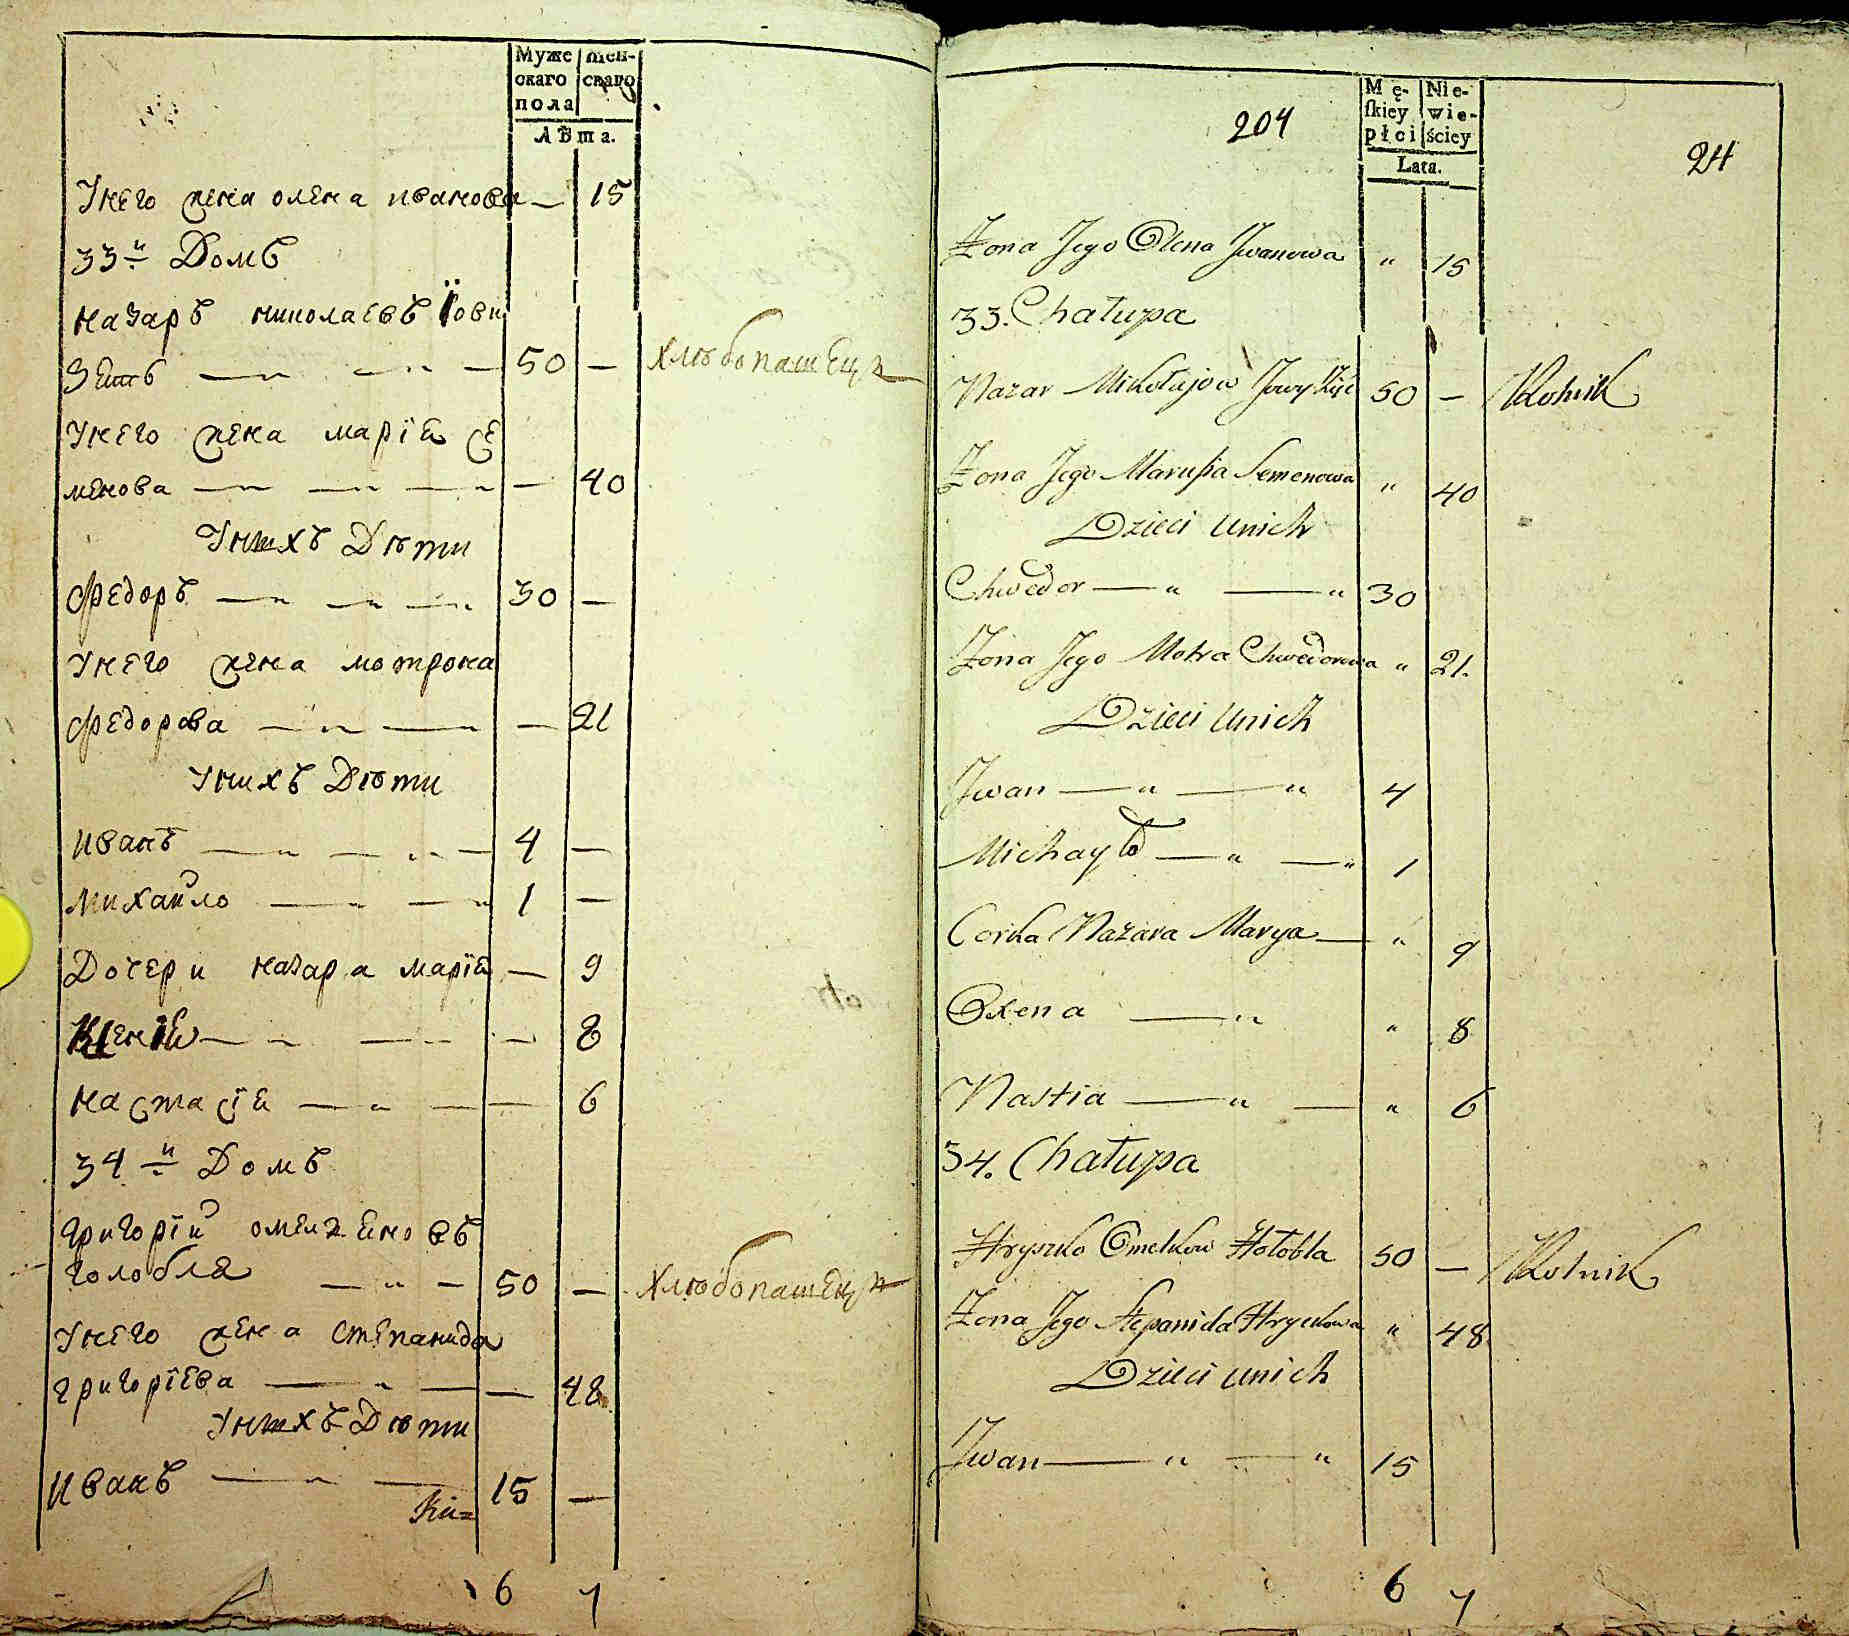 Муже
скаго
пола
жен-
скаго
Лѣта.
Унего жена олена иванова — 15
33й Домъ
назаръ николаевъ Їови
Зять — „ — „ — 50 — хлѣбопашецъ
Унего жена марїя се
менова — „ — „ — „ — 40
Унихъ Дѣти
Федоръ — „ — „ — „ 30 —
Унего жена мотрона
Федорова — „ — — 21
Унихъ Дѣти
иванъ — „ — „ — 4 —
михайло — „ — „ 1 —
Дочери назара марїя — 9
Ксенїя — „ — „ — 8
настасїя — „ — — 6
34й Домъ
григорїй омеляновъ
голобля — „ — 50 — хлѣбопашецъ
Унего жена степанида
григорїева — „ — — 48
Унихъ Дѣти
иванъ — „ — 15 —
Ки=
6 7
204
24
Mę-
skiey
płci
Nie-
wie-
ściey
Lata.
Żona Jego Olena Jwanowa „ 15
33. Chałupa
Nazar Mikołajow 50 — Rolnik
Żona Jego Marusia Semenowa „ 40
Dzieci unich
Chwedor — „ — „ 30
Żona Jego Motra Chwedorowa „ 21.
Dzieci unich
Jwan — „ — „ 4
Michayło — „ — „ 1
Corka Nazara Marya — „ 9
Oxena — „ „ 8
Nastia — „ — „ 6
34. Chałupa
Hryszko Omelkow Hołobla 50 — Rolnik
Żona Jego Stepanida Hryckowa „ 48
Dzieci unich
Jwan — „ — „ 15
6 7